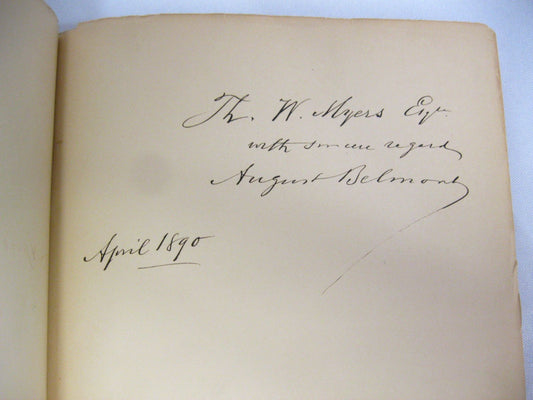 Th. W. Myers Esqre
with sincere regard
August Belmont
April 1890